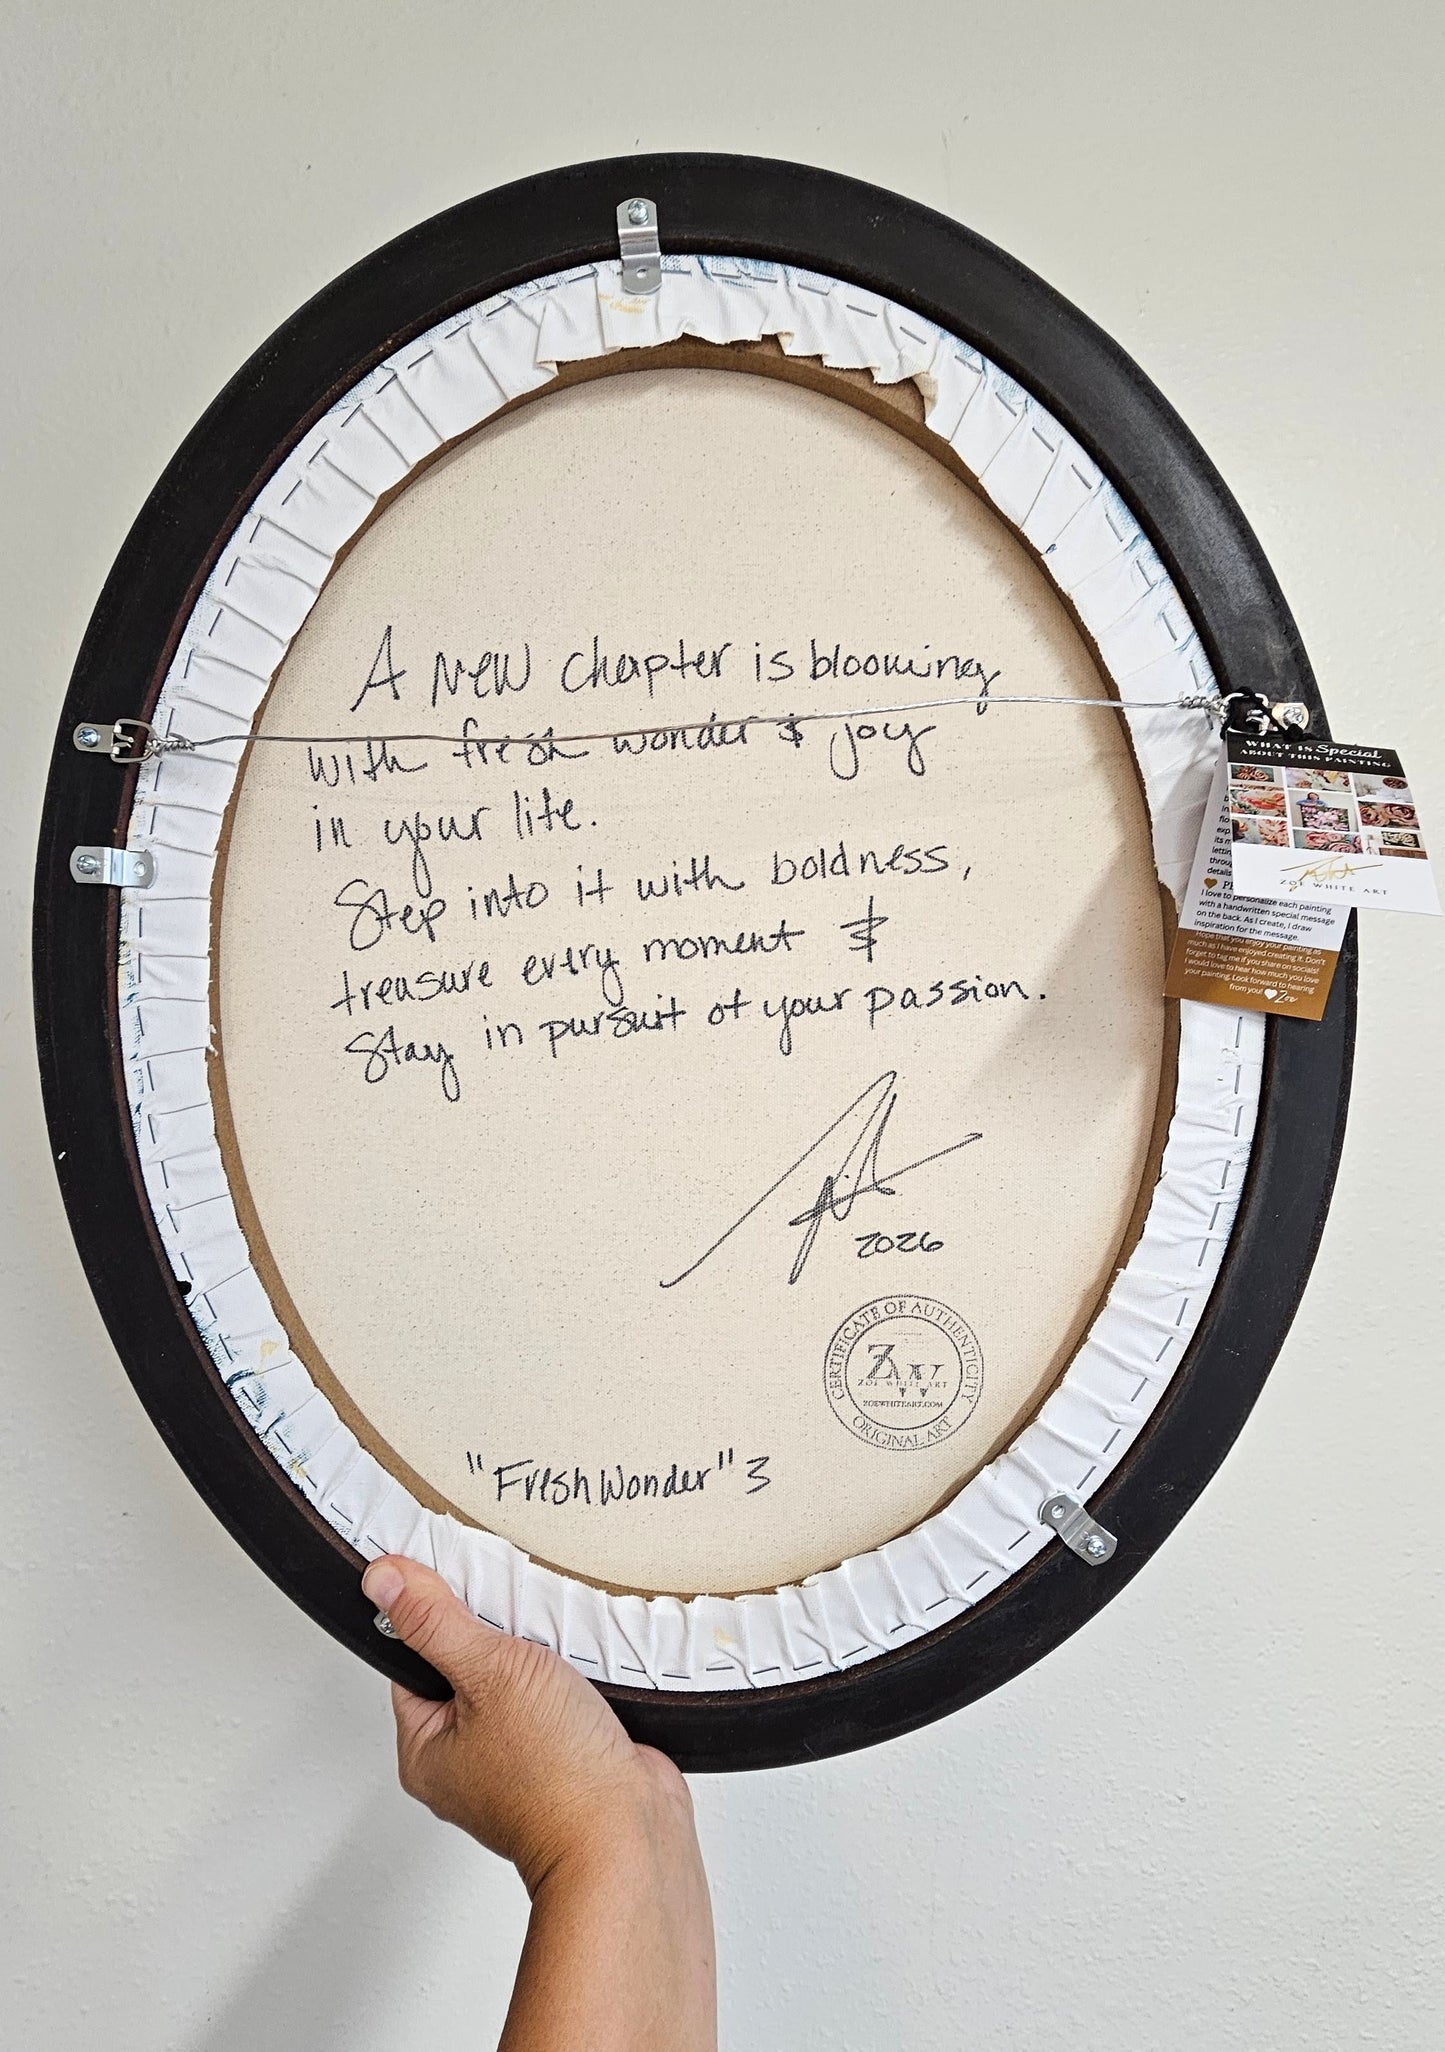 A New Chapter is blooming
with fresh wonder & joy
in your life.
Step into it with boldness,
treasure every moment &
Stay in pursuit of your passion.
2026
CERTIFICATE OF AUTHENTICITY
ZW
ZOE WHITE ART
ZOEWHITEART.COM
ORIGINAL ART
"Fresh Wonder" 3
WHAT IS Special
ABOUT THIS PAINTING
ZOE WHITE ART
details
I love to personalize each painting
with a handwritten special message
on the back. As I create, I draw
inspiration for the message.
Hope that you enjoy your painting as
much as I have enjoyed creating it. Don't
forget to tag me if you share on socials!
I would love to hear how much you love
your painting. Look forward to hearing
from you! Zoe